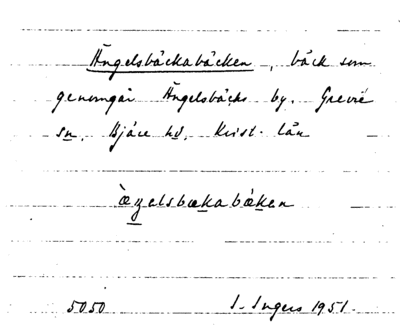 Ängelsbäckabäcken, bäck som
genomgår Ängelsbäcks by. Grevie
sn. Bjäre hd. Krist. län
æ̀ŋelsbækabæken
5050 I. Ingers 1951.